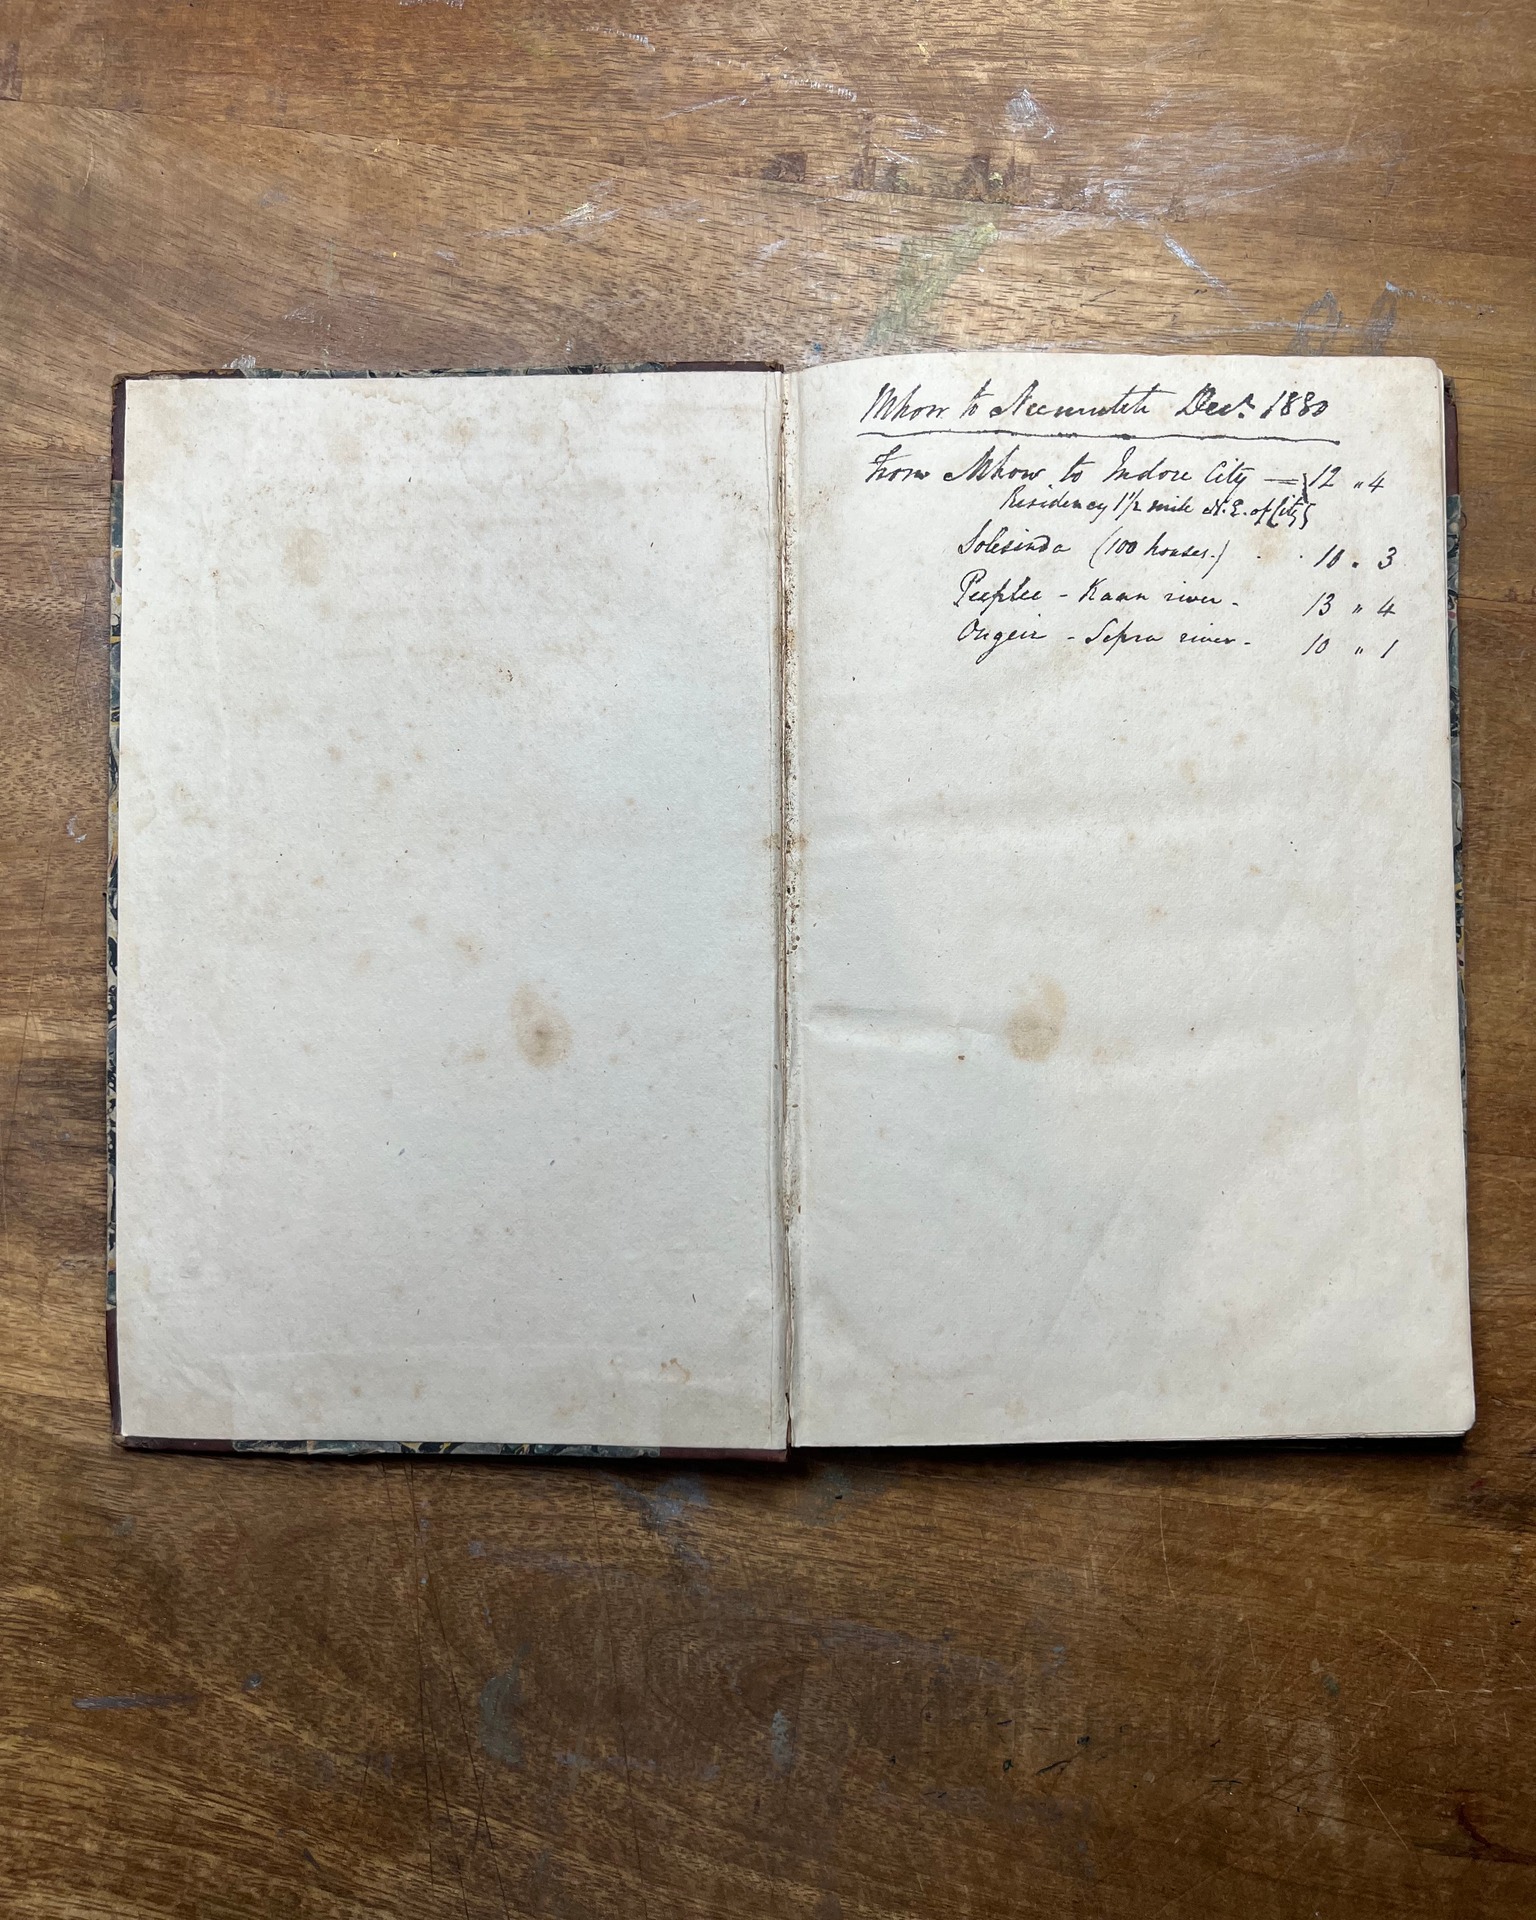 Mhow to Neemutch Decr. 1880
From Mhow to Indore City — 12 " 4
Residency 1 1/2 mile N.E. of City
Solesinda (100 houses.) . . 10 " 3
Peeplee - Kaan river - 13 " 4
Ougein - Sepra river - 10 " 1